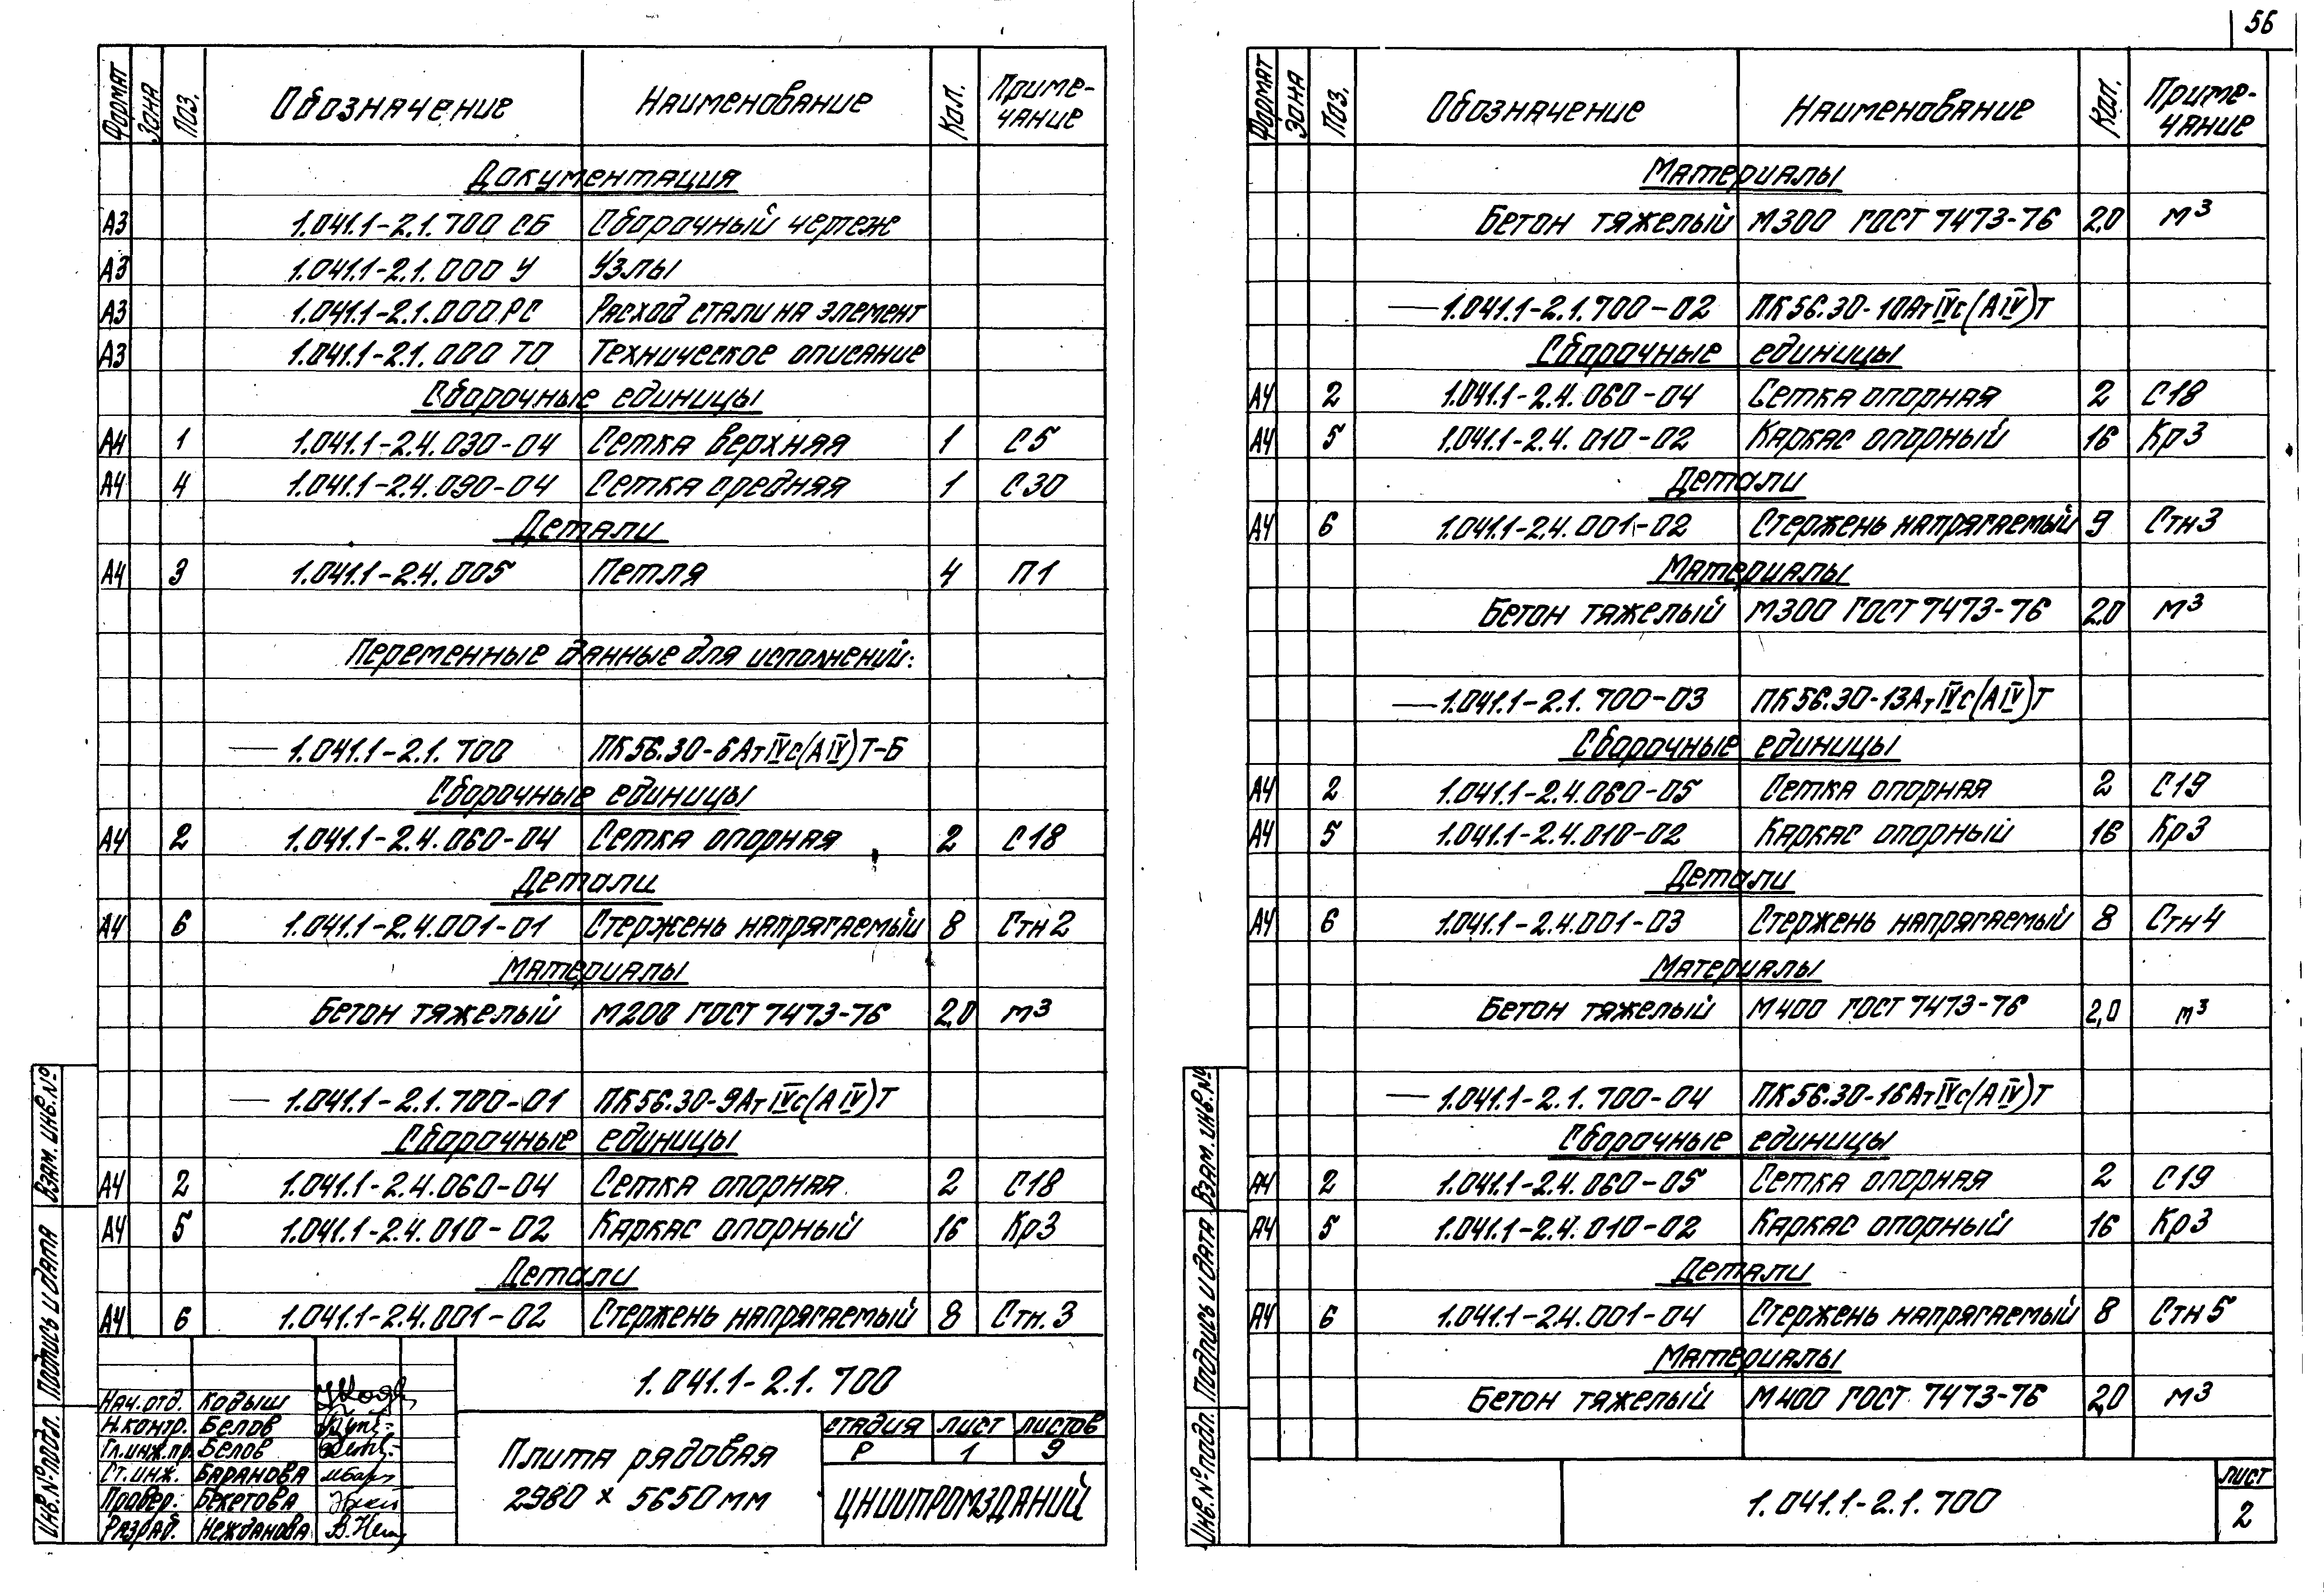 56
Формат Зона Поз. Обозначение Наименование Кол. Приме-чание
Документация
А3 1.041.1-2.1.700 СБ Сборочный чертеж
А3 1.041.1-2.1.000 У Узлы
А3 1.041.1-2.1.000 РС Расход стали на элемент
А3 1.041.1-2.1.000 ТО Техническое описание
Сборочные единицы
А4 1 1.041.1-2.4.030-04 Сетка верхняя 1 С5
А4 4 1.041.1-2.4.090-04 Сетка средняя 1 С30
Детали
А4 3 1.041.1-2.4.005 Петля 4 П1
Переменные данные для исполнений:
— 1.041.1-2.1.700 ПК56.30-6АтIVс(АIV)Т-Б
Сборочные единицы
А4 2 1.041.1-2.4.060-04 Сетка опорная 2 С18
Детали
А4 6 1.041.1-2.4.001-01 Стержень напрягаемый 8 Стн2
Материалы
Бетон тяжелый М200 ГОСТ 7473-76 2,0 м³
— 1.041.1-2.1.700-01 ПК56.30-9АтIVс(АIV)Т
Сборочные единицы
А4 2 1.041.1-2.4.060-04 Сетка опорная 2 С18
А4 5 1.041.1-2.4.010-02 Каркас опорный 16 Кр3
Детали
А4 6 1.041.1-2.4.001-02 Стержень напрягаемый 8 Стн.3
Взам. инв.№
Подпись и дата
Инв.№ подл.
1.041.1-2.1.700
Нач.отд. Кодыш
Н.контр. Белов
Гл.инж.пр. Белов
Ст.инж. Баранова
Провер. Бекетова
Разраб. Нежданова
Плита рядовая
2980 х 5650 мм
стадия лист листов
Р 1 9
ЦНИИПРОМЗДАНИЙ
Формат Зона Поз. Обозначение Наименование Кол. Приме-чание
Материалы
Бетон тяжелый М300 ГОСТ 7473-76 2,0 м³
— 1.041.1-2.1.700-02 ПК56.30-10АтIVс(АIV)Т
Сборочные единицы
А4 2 1.041.1-2.4.060-04 Сетка опорная 2 С18
А4 5 1.041.1-2.4.010-02 Каркас опорный 16 Кр3
Детали
А4 6 1.041.1-2.4.001-02 Стержень напрягаемый 9 Стн3
Материалы
Бетон тяжелый М300 ГОСТ 7473-76 2,0 м³
— 1.041.1-2.1.700-03 ПК56.30-13АтIVс(АIV)Т
Сборочные единицы
А4 2 1.041.1-2.4.060-05 Сетка опорная 2 С19
А4 5 1.041.1-2.4.010-02 Каркас опорный 16 Кр3
Детали
А4 6 1.041.1-2.4.001-03 Стержень напрягаемый 8 Стн4
Материалы
Бетон тяжелый М400 ГОСТ 7473-76 2,0 м³
— 1.041.1-2.1.700-04 ПК56.30-16АтIVс(АIV)Т
Сборочные единицы
А4 2 1.041.1-2.4.060-05 Сетка опорная 2 С19
А4 5 1.041.1-2.4.010-02 Каркас опорный 16 Кр3
Детали
А4 6 1.041.1-2.4.001-04 Стержень напрягаемый 8 Стн5
Материалы
Бетон тяжелый М400 ГОСТ 7473-76 2,0 м³
Взам. инв.№
Подпись и дата
Инв.№ подл.
1.041.1-2.1.700
лист
2